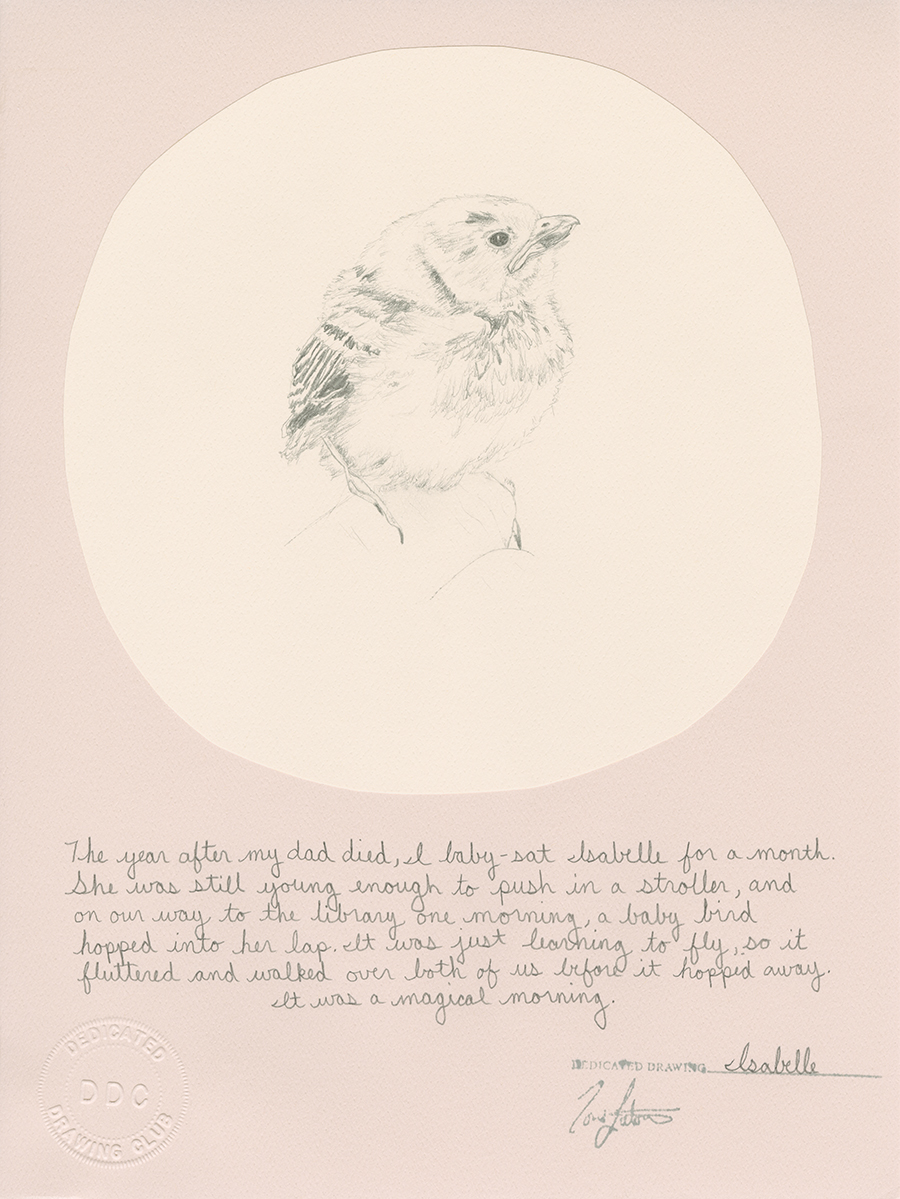 The year after my dad died, I baby-sat Isabelle for a month.
She was still young enough to push in a stroller, and
on our way to the library one morning, a baby bird
hopped into her lap. It was just learning to fly, so it
fluttered and walked over both of us before it hopped away.
It was a magical morning.
DEDICATED DRAWING Isabelle
DEDICATED
DDC
DRAWING CLUB